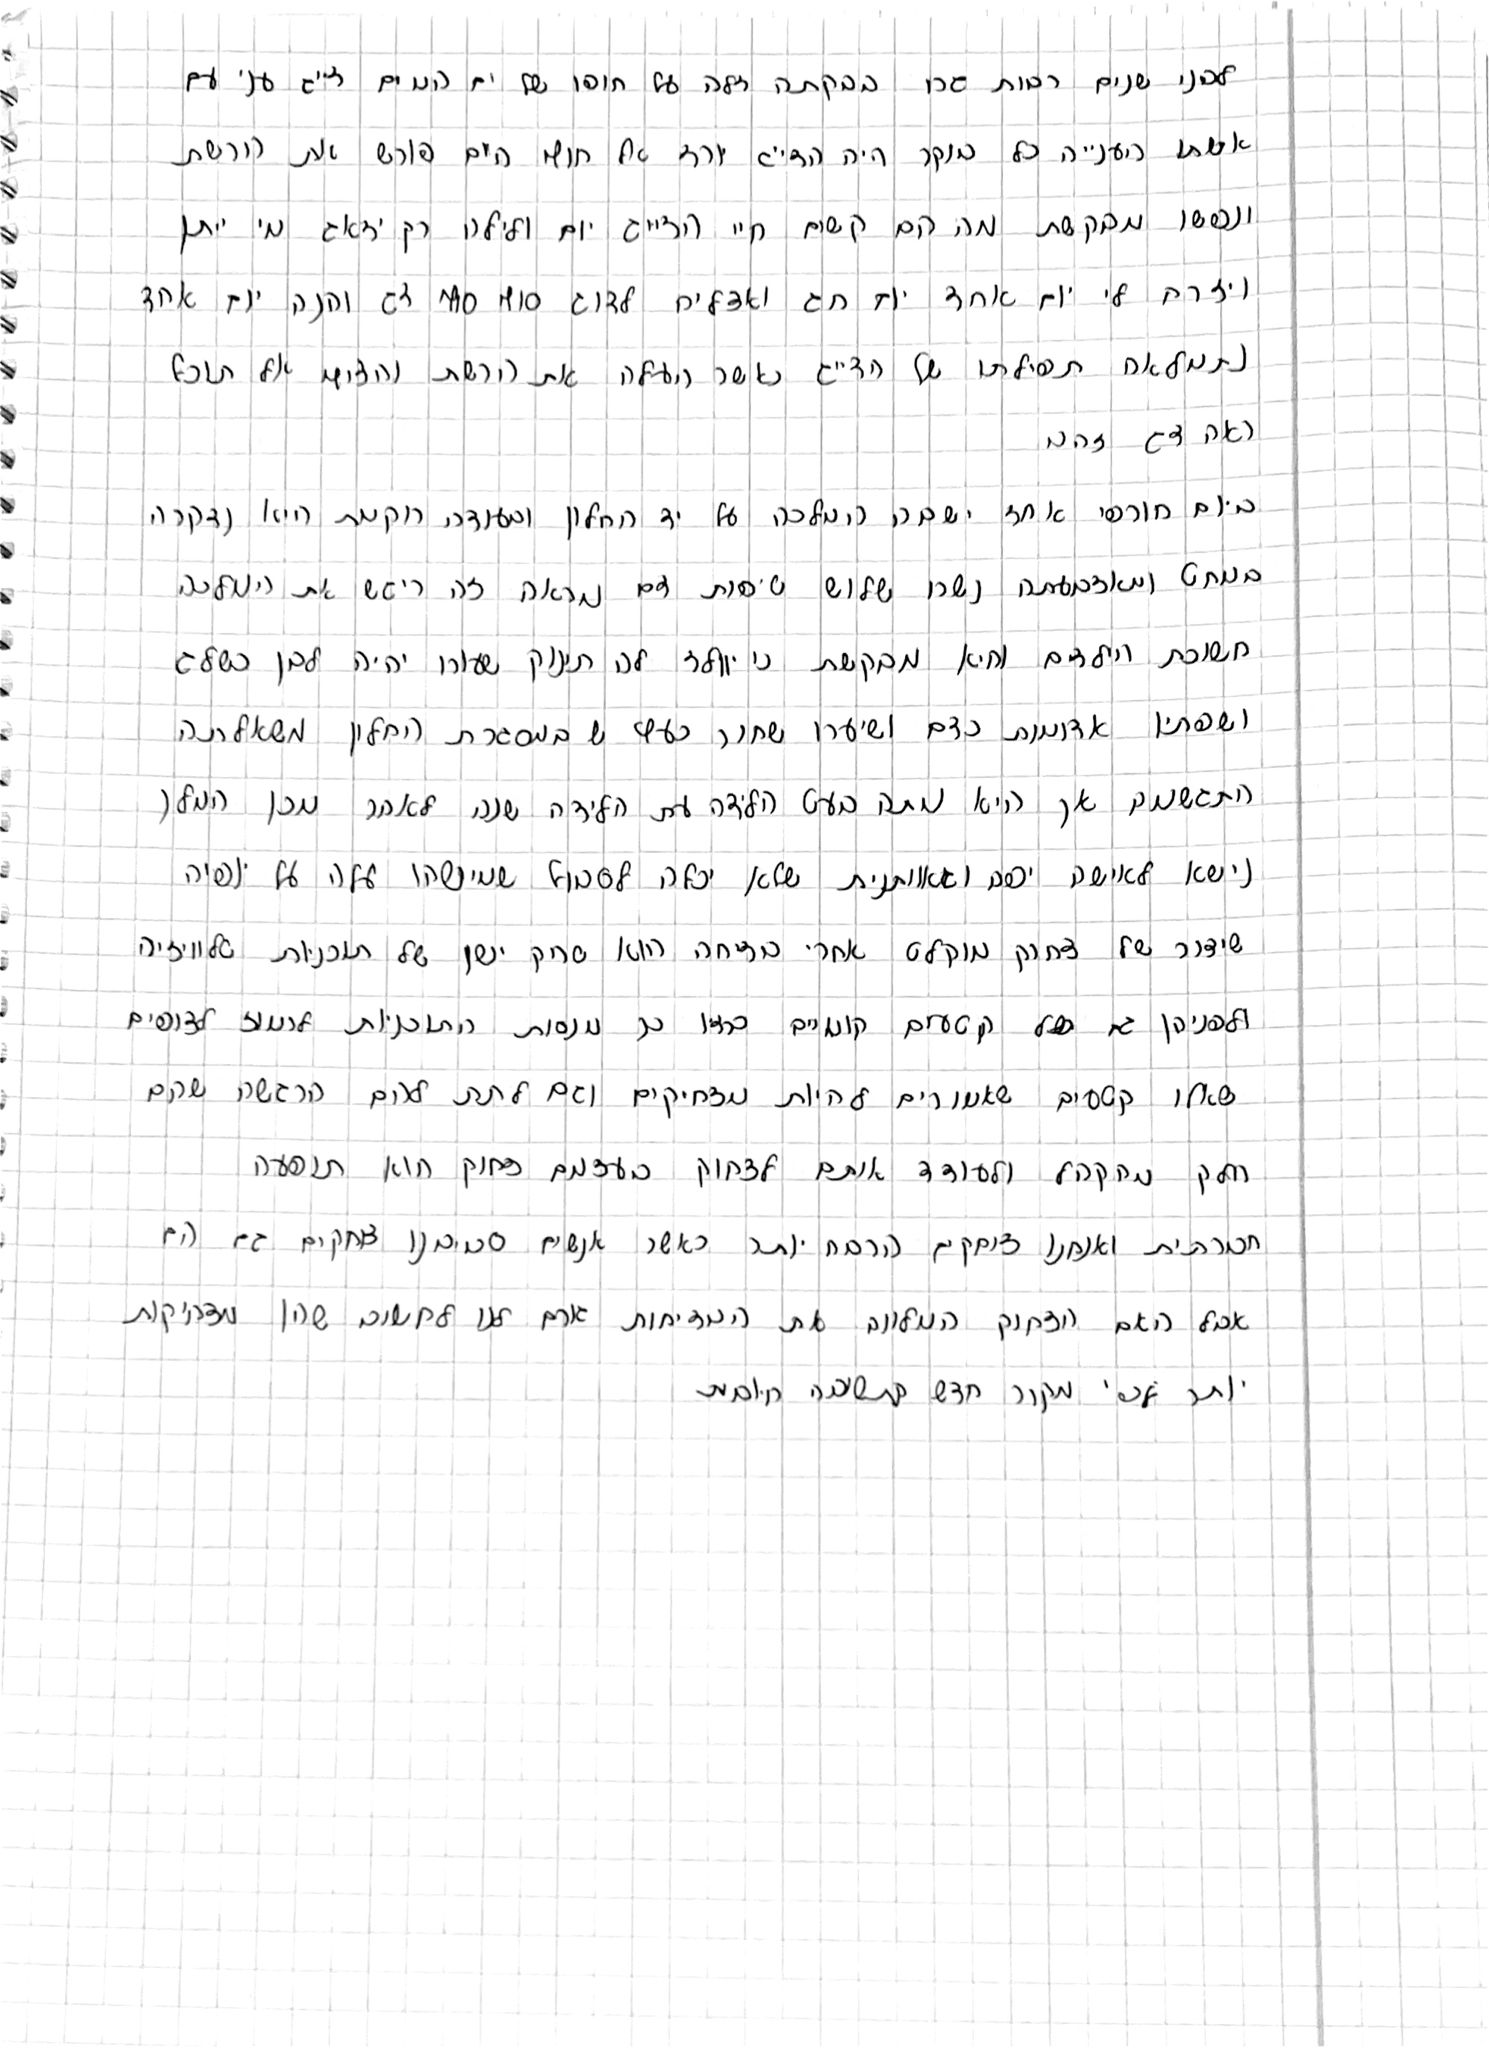 לפני שנים רבות גרו בבקתה דלה על חופו של ים המים דייג עני עם
אשתו הענייה כל בוקר היה הדייג יורד אל חוף הים פורש את הרשת
ונפשו מבקשת מה הם קשים חיי הדייג יום ולילה רק ידאג מי ייתן
ויזרח לי יום אחד יום חג ואצליח לדוג סוף סוף דג והנה יום אחד
נתמלאה תפילתו של הדייג כאשר העלה את הרשת והציץ אל תוכה
ראה דג זהב
ביום חורפי אחד ישבה המלכה על יד החלון ובעודה רוקמת היא נדקרה
במחט ומאצבעתה נשרו שלוש טיפות דם מראה זה ריגש את המלכה
חשוכת הילדים והיא מבקשת כי יוולד לה תינוק שעורו יהיה לבן כשלג
ושפתיו אדומות כדם ושיערו שחור כעץ ש במסגרת החלון משאלתה
התגשמה אך היא מתה בעט הלידה עת הלידה שנה לאחר מכן המלך
נישא לאישה יפה וגאוותנית שלא יכלה לסבול שמישהו עלה על יופיה
שידור של צחוק מוקלט אחרי בדיחה הוא טריק ישן של תוכניות טלוויזיה
ולפניהן גם של קטעים קומיים ברדיו כך מנסות התוכניות לרמוז לצופים
שאלו קטעים שאמורים להיות מצחיקים וגם לתת להם הרגשה שהם
חלק מהקהל ולעודד אותם לצחוק בעצמם צחוק הוא תופעה
חברתית ואנחנו צוחקים הרבה יותר כאשר אנשים סביבנו צוחקים גם הם
אבל האם הצחוק המלווה את הבדיחות גורם לנו לחשוב שהן מצחיקות
יותר לפי מקור חדש התשובה חיובית